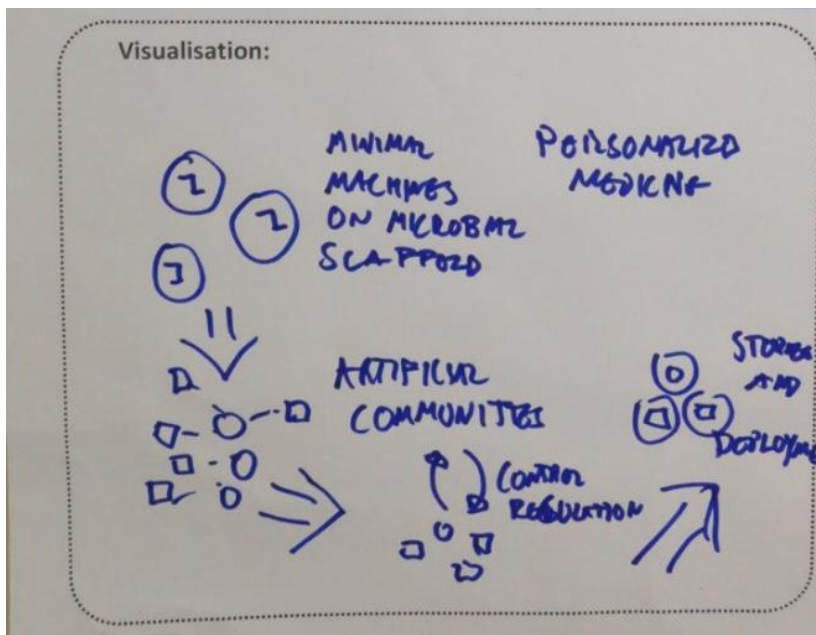 Visualisation:
MINIMAL
MACHINES
ON MICROBIAL
SCAFFOLD
PERSONALIZED
MEDICINE
2
2
3
ARTIFICIAL
COMMUNITIES
CONTROL
REGULATION
STORAGE
AND
DEPLOYME